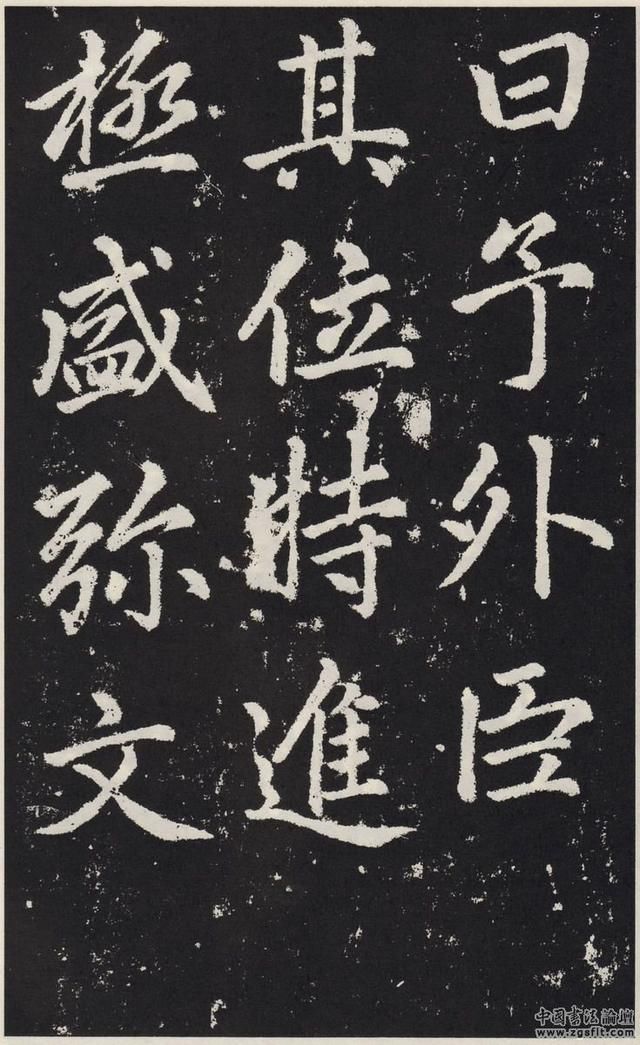 曰予外臣
其位特進
極盛弥文
中國书法論壇
www.zgsflt.com